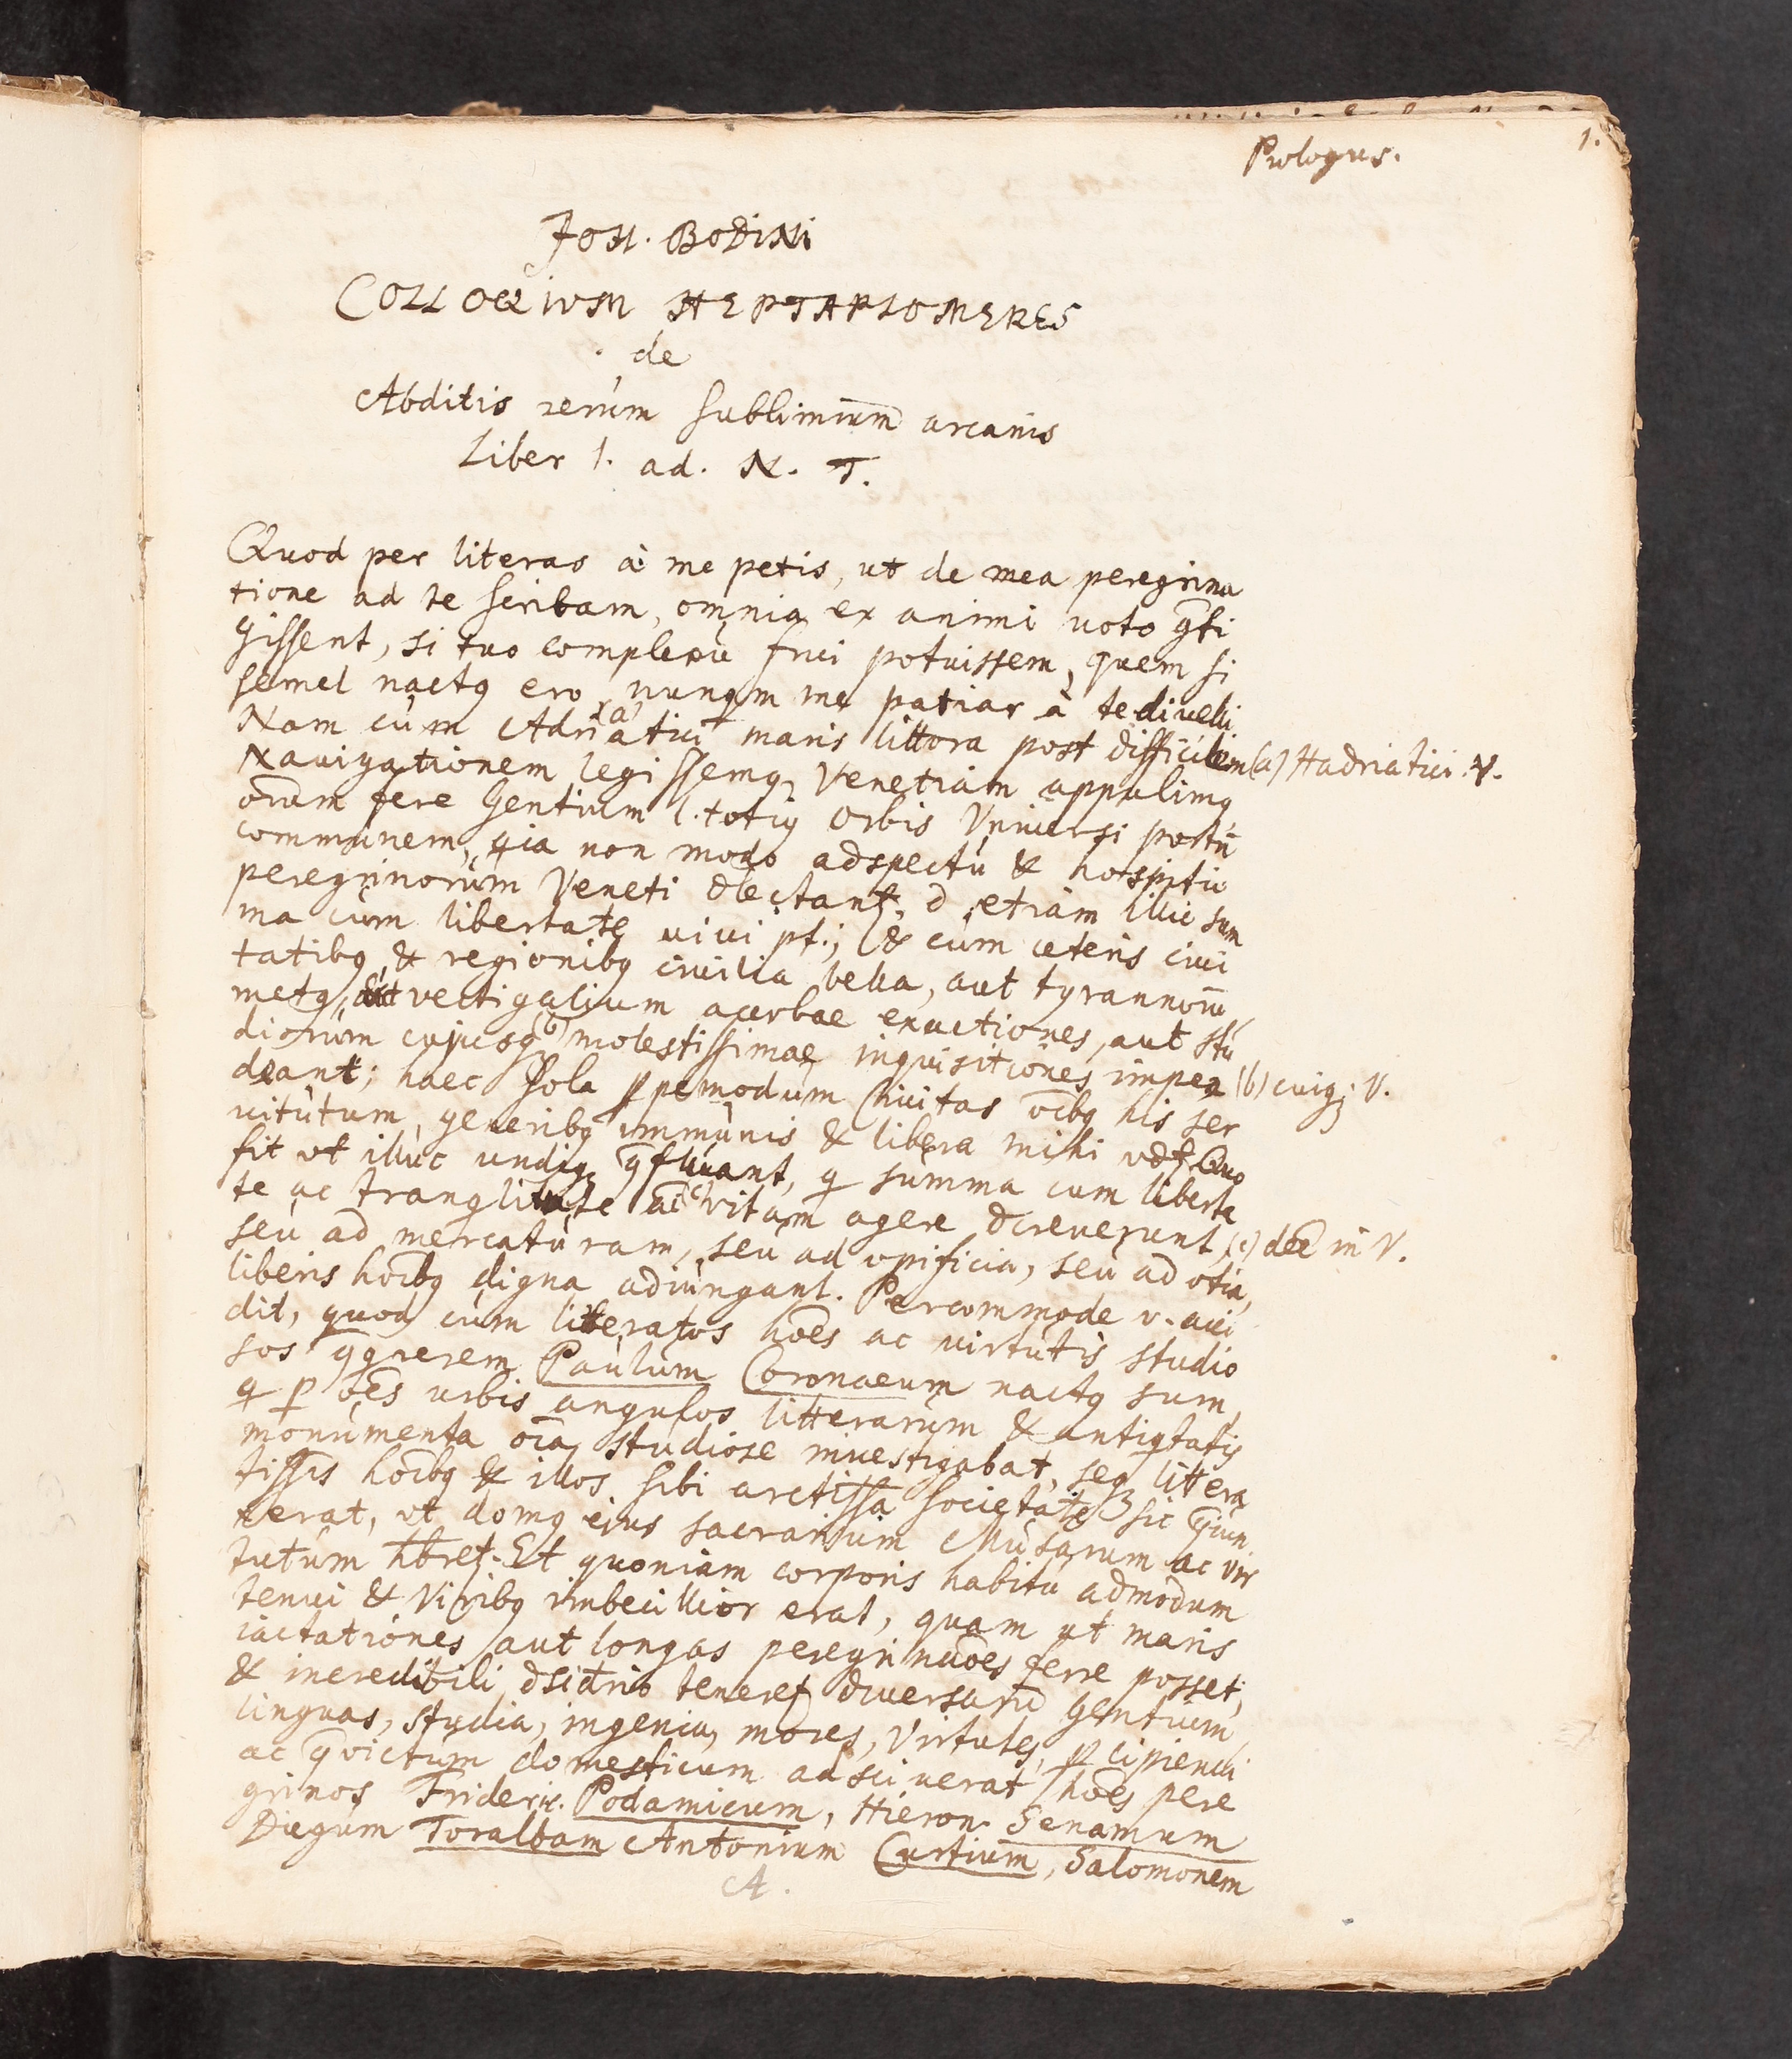 Prologus.
1.
JOH. BODINI
COLLOQUIUM HEPTAPLOMERES
de
Abditis rerum sublimium arcanis
Liber 1. ad. N. T.
Quod per literas à me petis, ut de mea peregrina
tione ad te scribam, omnia ex animi voto ꝯti
gissent, si tuo complexu frui potuissem, quem si
semel nactꝯ ero, nunqm me patiar à te divelli
Nam cùm Adriatici (a) maris littora post difficilem
(a) Hadriatici. V.
Navigationem legissemꝯ, Venetiam appulimꝯ
oīum fere Gentium l. totiꝯ Orbis Universi portū
communem, qia non modo adspectu & hospitio
peregrinorum Veneti dlectantʳ, d etiam illic sum
ma cùm libertate vivi pt.; & cùm ceteris civi
tatibꝯ & regionibꝯ civilia bella, aut tyrannorū
metꝯ, aut vectigalium acerbae exactiones, aut stu
diorum cujusqꝫ (b) molestissimae inquisitiones impen
(b) cuiqꝫ V.
deant; haec sola ꝓpemodum Civitas oībꝯ his ser
vitutum generibꝯ immunis & libera mihi vdtʳ. Quo
fit ut illuc undiqꝫ ꝯfluant, q summa cum liberta
te ac tranqlitate ac (c) vitam agere dcreverunt,
(c) deē in V.
seu ad mercaturam, seu ad opificia, seu ad otia,
liberis hoībꝯ digna adiungant. Percommode v. acci
dit, quod cùm literatos hoēs ac virtutis studio
sos ꝯqrerem Paulum Coronaeum nactꝯ sum,
q ꝑ oēs urbis angulos litterarum & antiqtatis
monumenta oīa studiose investigabat, seqꝫ littera
tissīs hoībꝯ & illos sibi arctissa societate sic ꝯiun
xerat, ut domꝯ ejus sacrarium Musarum ac vir
tutum hbretʳ. Et quoniam corporis habitu admodum
tenui & viribꝯ imbecillior erat, quam ut maris
iactationes aut longas peregrinaoēs ferre posset,
& incredibili dsidrio teneretʳ diversarū Gentium
linguas, studia, ingenia, mores, virtutes, ꝑcipiendi
ac ꝯvictum domesticum adsciverat hoēs pere
grinos Frideric. Podamicum, Hieron. Senamum
Diegum Toralbam Antonium Curtium, Salomonem
A.